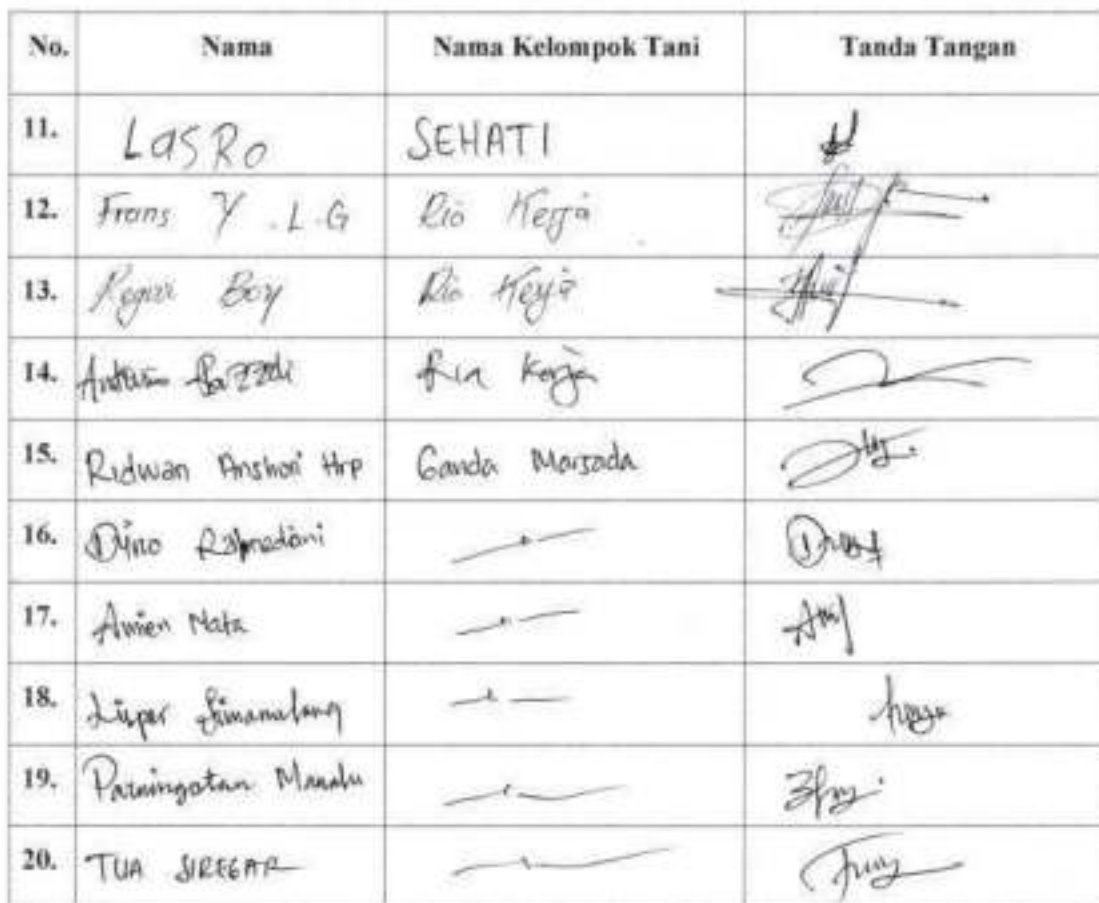 No. Nama Nama Kelompok Tani Tanda Tangan
11. LasRo SEHATI
12. Frans Y . L . G Rio Kerja
13. Regar Boy Rio Kerja
14. Ria Kerja
15. Ridwan Anshori Hrp Ganda Marsada
16. Dino Ramadani
17. Amien Nata
18. Lisper Simamalang
19. Parningotan Manalu
20. TUA SIREGAR